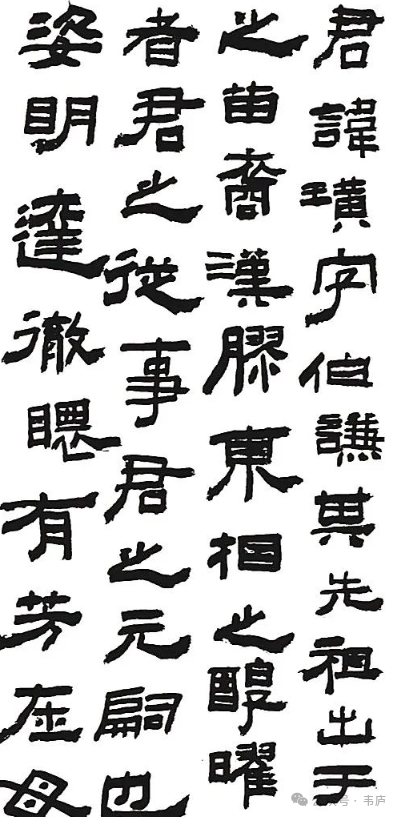 君諱璜字伯謙其先祖出于
之苗裔漢膠東相之醇曜
者君之從事君之元嗣也
姿明達徹有芳在母
公众号 · 韦庐